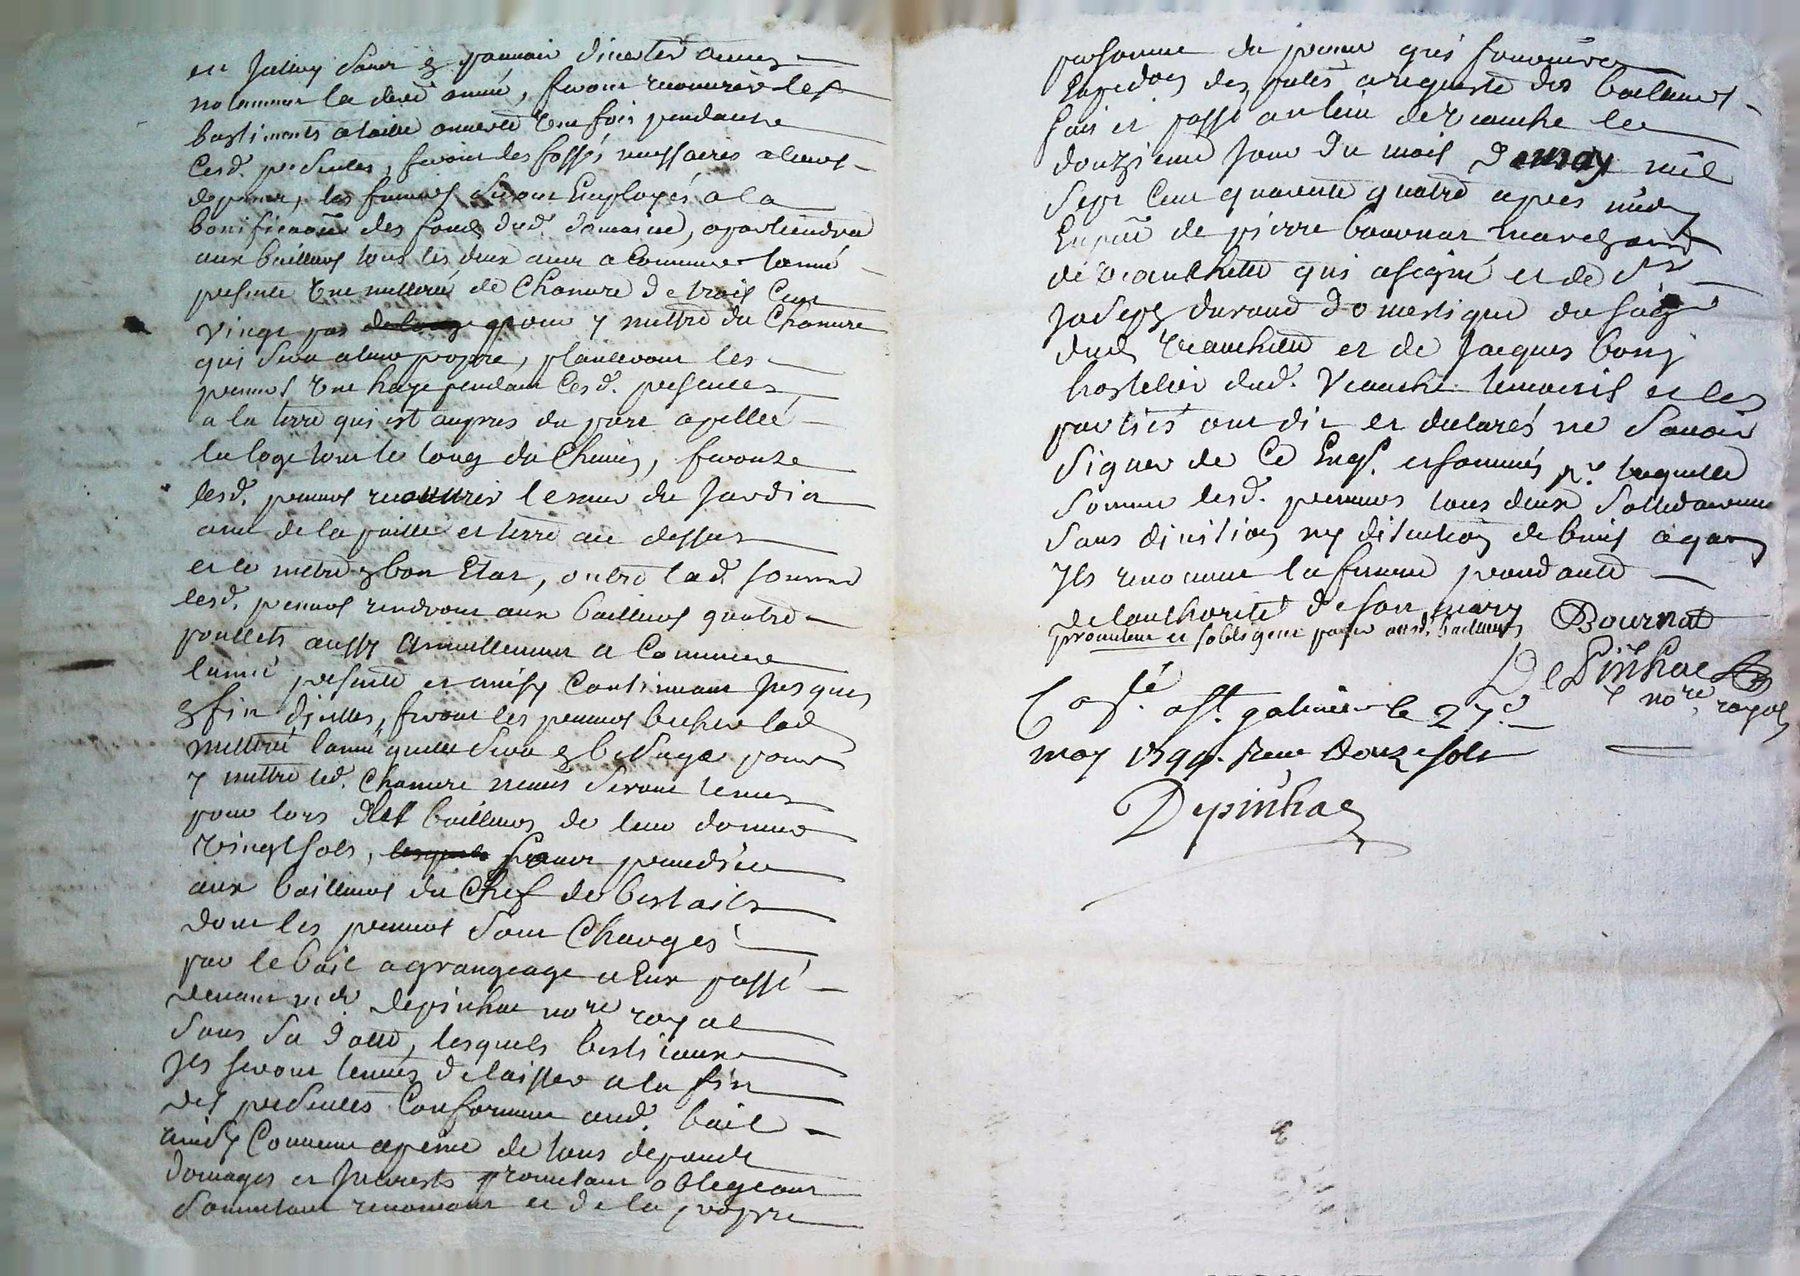 en jallois sans en pouvoir
notemment la derre année, feront recouvrir les
bastiments a taille ouverte une fois pendant
Cesd. presentes, feront des fossés necessaires a leurs
depens, les fumiers seront Employés a la
bonification des fonds dud. domaine, apartiendra
aux bailleurs tous les deux ans a Commencer lanné
presente une metteré de Chanvre de trois Cent
vingt pas pour y mettre du Chanvre
qui sera a leur propre, planteront les
preneurs une haye pendant Cesd. presentes
a la terre qui est aupres du pare apellée
la loge tout le long du Chemin, feront
lesd. preneurs recouvrir le mur du Jardin
avec de la paille et terre au dessus
et le mettre en bon Etat, outre lad. somme
lesd. preneurs rendront aux bailleurs quatre
poullets aussy annuellement a Commencer
lanné presente et ainsy Continuant jusques
en fin dicelles, feront les preneurs becher lad.
metteré lanné quelle sera en
y mettre led. Chanvre seront tenus
pour lors les bailleurs de leur donner
vingt sols, prendre
aux bailleurs du Chef de bestails
dont les preneurs sont Chargés
par le bail a grangeage a Eux passé
devant me. depinhac nore royal
sous sa datte, lesquels bestiaux
Ils seront tenus de laisser a la fin
des presentes Conformement aud. bail
ainsy Convenu a peine de tous depends
domages et Interests promettant obligeant
soumettant renoncant et de la propre
personne du preneur qui
des a requeste des bailleurs
fait et passé au lieu de vranche le
douzieme jour du mois de may mil
sept Cent quarente quatre apres midy
En pnce de pierre bournat marchand
de qui a signé et de Sr
Joseph durand domestique du
dud. et de Jacques
hostelier dud. temoins et les
parties ont dit et declarés ne savoir
signer de Ce Enqs. et sommés pr. laquelle
somme lesd. preneurs tous deux sollidairement
sans division ny discution de biens a quoy
Ils renoncent la femme
de lauthorité de son mary
promettent et sobligent payer auxd. bailleurs
Bournat
DePinhac
nore. royal
Conlé. a St. galmier le 27e
may 1744. Reçu douze sols
Depinhac